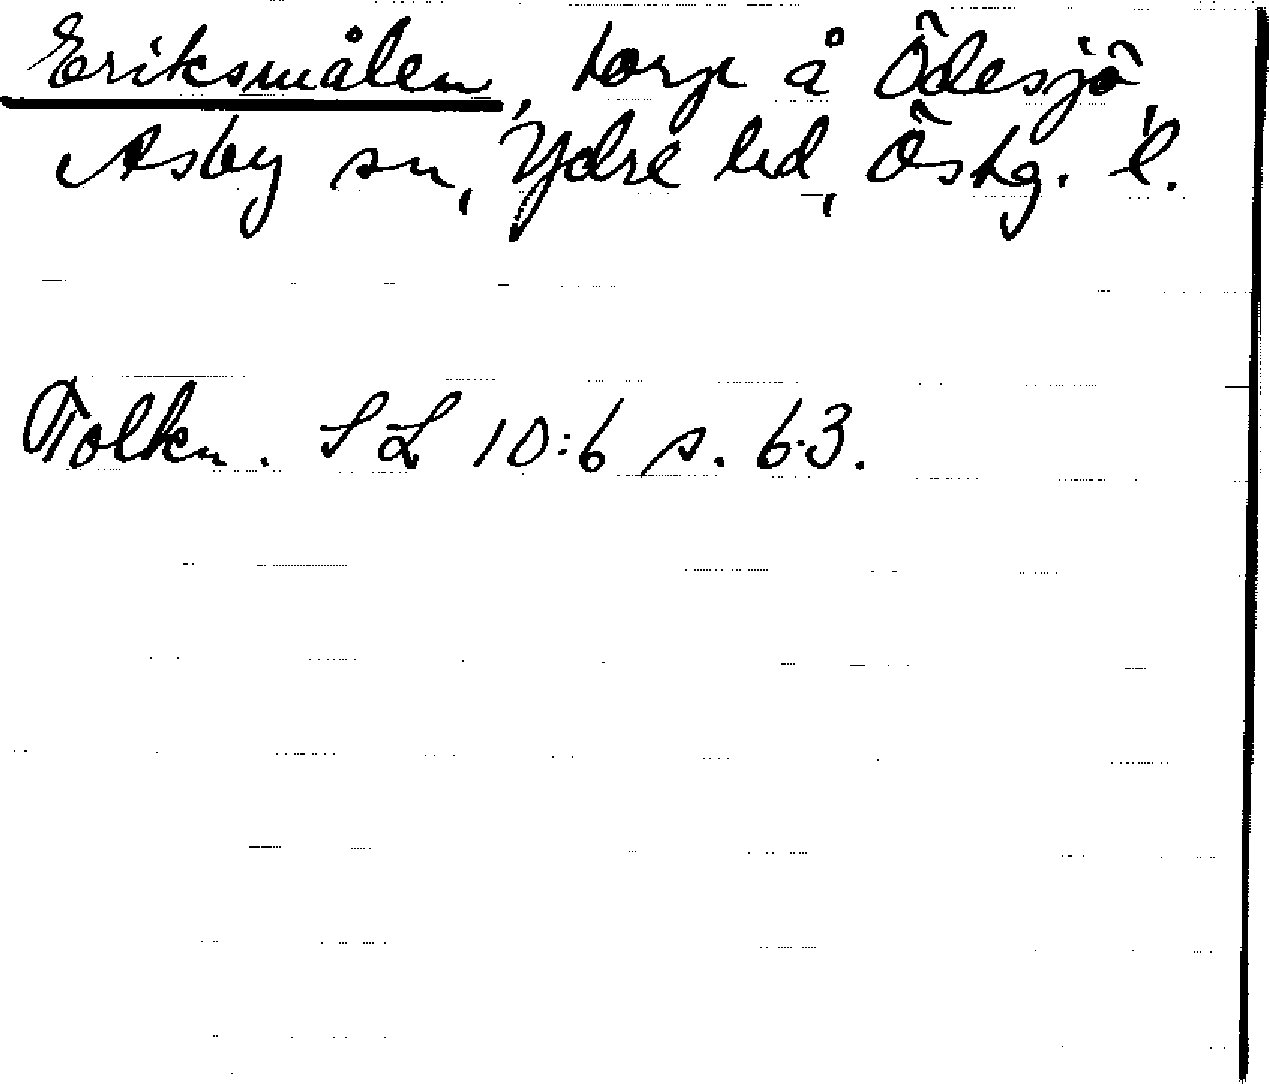 Eriksmålen, torp å Ödesjö,
Asby sn, Ydre hd, Östg. l.
Folkn. SL 10:6 s. 63.